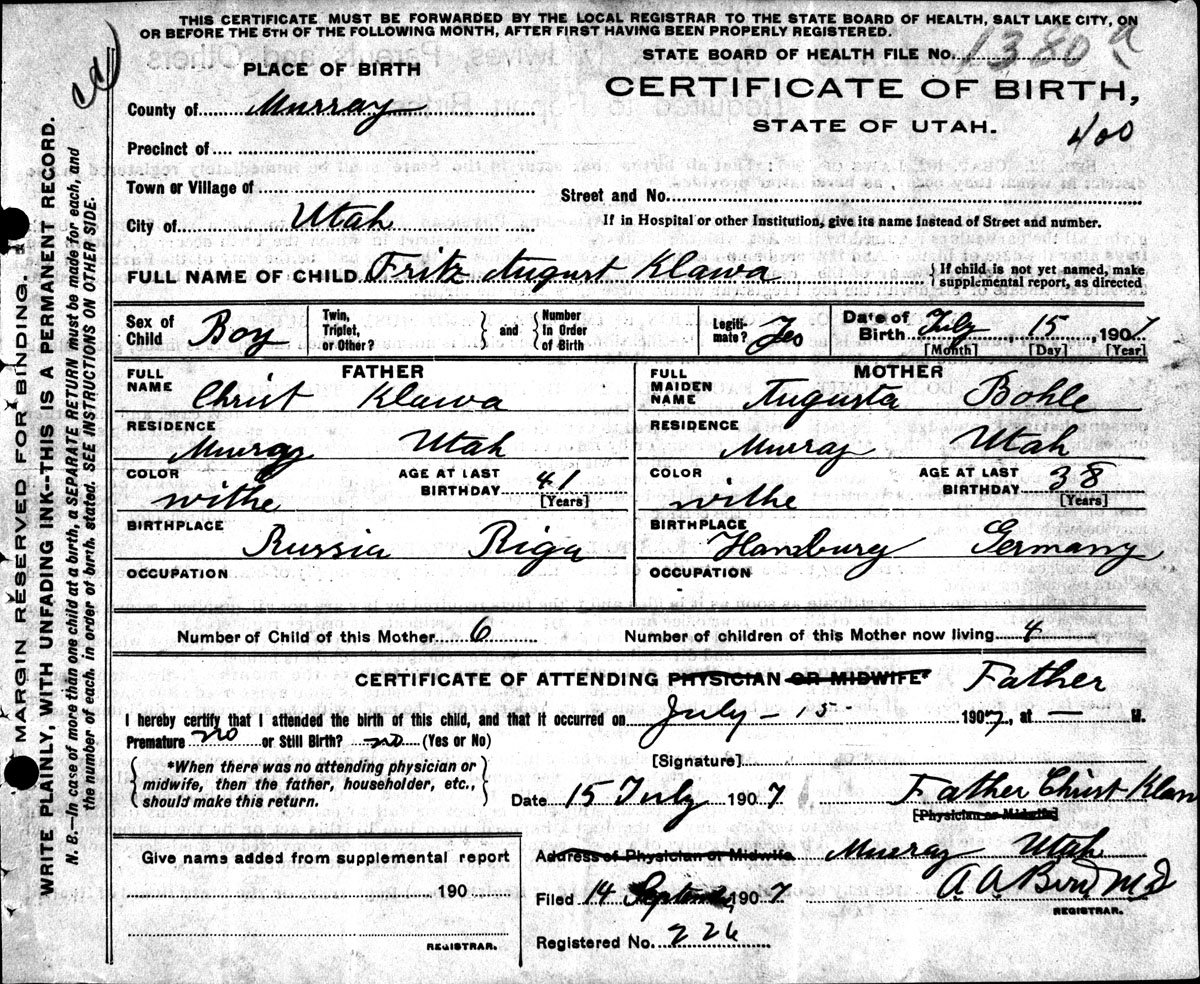 THIS CERTIFICATE MUST BE FORWARDED BY THE LOCAL REGISTRAR TO THE STATE BOARD OF HEALTH, SALT LAKE CITY, ON
OR BEFORE THE 5TH OF THE FOLLOWING MONTH, AFTER FIRST HAVING BEEN PROPERLY REGISTERED.
STATE BOARD OF HEALTH FILE No. 1380 a
PLACE OF BIRTH
CERTIFICATE OF BIRTH,
STATE OF UTAH.
400
County of Murray
Precinct of
Town or Village of
Street and No.
City of Utah
If in Hospital or other Institution, give its name instead of Street and number.
FULL NAME OF CHILD Fritz August Klawa
{ If child is not yet named, make
supplemental report, as directed
Sex of Child Boy
Twin, Triplet, or Other? } and { Number In Order of Birth
Legitimate? Yes
Date of Birth July 15, 1907
[Month] [Day] [Year]
FATHER
FULL NAME Christ Klawa
RESIDENCE Murray Utah
COLOR withe
AGE AT LAST BIRTHDAY 41
[Years]
BIRTHPLACE Russia Riga
OCCUPATION
MOTHER
FULL MAIDEN NAME Augusta Bohle
RESIDENCE Murray Utah
COLOR withe
AGE AT LAST BIRTHDAY 38
[Years]
BIRTHPLACE Hamburg Germany
OCCUPATION
Number of Child of this Mother 6
Number of children of this Mother now living 4
CERTIFICATE OF ATTENDING PHYSICIAN OR MIDWIFE* Father
I hereby certify that I attended the birth of this child, and that it occurred on July - 15 - 1907, at — M.
Premature no or Still Birth? no (Yes or No)
{ *When there was no attending physician or
midwife, then the father, householder, etc.,
should make this return. }
[Signature]
Date 15 July 1907
Father Christ Klaw
[Physician or Midwife]
Address of Physician or Midwife Murray Utah
Give name added from supplemental report
190
REGISTRAR.
Filed 14 September 1907
A A Bird MD
REGISTRAR.
Registered No. 226
MARGIN RESERVED FOR BINDING.
WRITE PLAINLY, WITH UNFADING INK--THIS IS A PERMANENT RECORD.
N. B.—In case of more than one child at a birth, a SEPARATE RETURN must be made for each, and
the number of each, in order of birth, stated. SEE INSTRUCTIONS ON OTHER SIDE.